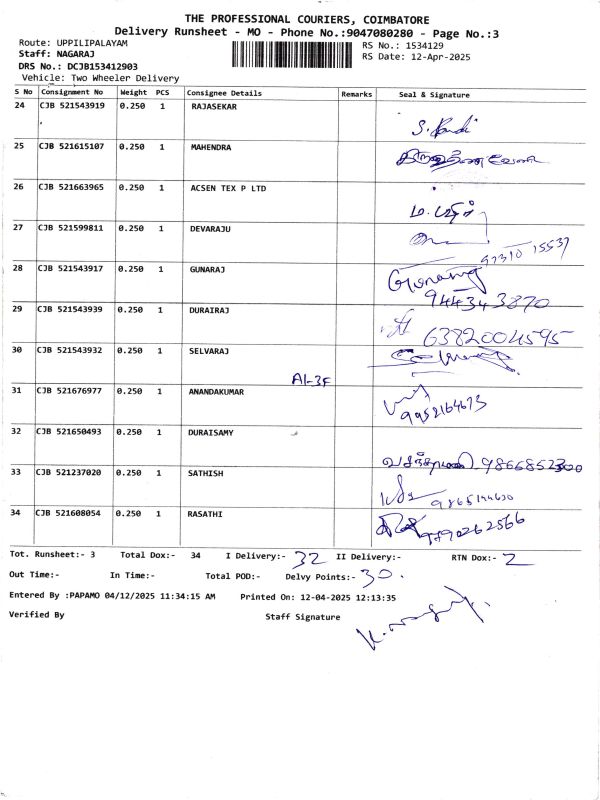 THE PROFESSIONAL COURIERS, COIMBATORE
Delivery Runsheet - MO - Phone No.:9047080280 - Page No.:3
Route: UPPILIPALAYAM
Staff: NAGARAJ
DRS No.: DCJB153412903
Vehicle: Two Wheeler Delivery
RS No.: 1534129
RS Date: 12-Apr-2025
S No Consignment No Weight PCS Consignee Details Remarks Seal & Signature
24 CJB 521543919 0.250 1 RAJASEKAR
25 CJB 521615107 0.250 1 MAHENDRA
26 CJB 521663965 0.250 1 ACSEN TEX P LTD
27 CJB 521599811 0.250 1 DEVARAJU
97310 15537
28 CJB 521543917 0.250 1 GUNARAJ
Gunaraj
944343870
29 CJB 521543939 0.250 1 DURAIRAJ
6382004595
30 CJB 521543932 0.250 1 SELVARAJ
A1-3F
31 CJB 521676977 0.250 1 ANANDAKUMAR
9952164673
32 CJB 521650493 0.250 1 DURAISAMY
9866852300
33 CJB 521237020 0.250 1 SATHISH
34 CJB 521608054 0.250 1 RASATHI
9790262566
Tot. Runsheet:- 3 Total Dox:- 34 I Delivery:- 32 II Delivery:- RTN Dox:- 2
Out Time:- In Time:- Total POD:- Delvy Points:- 30.
Entered By :PAPAMO 04/12/2025 11:34:15 AM Printed On: 12-04-2025 12:13:35
Verified By Staff Signature